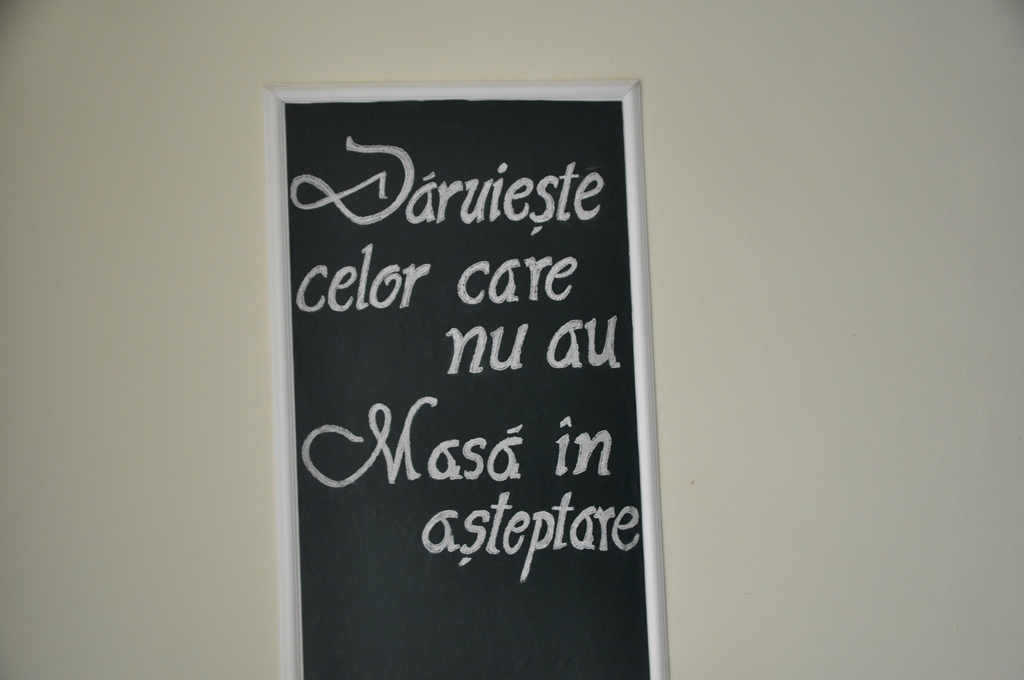 Dăruiește
celor care
nu au
Masă în
așteptare